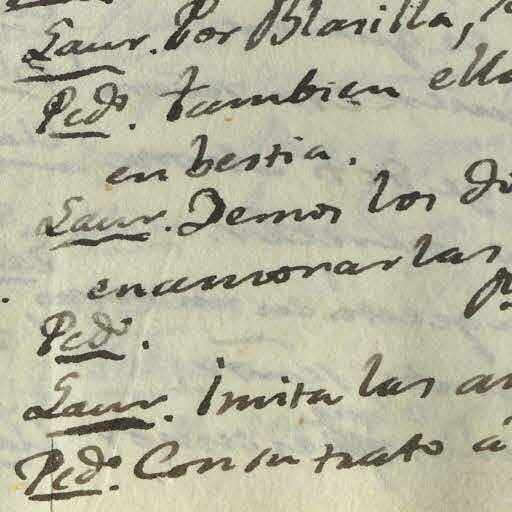 Laur. Por Blasilla,
Pedº. tambien ella
en bestia.
Laur. Demos los
enamorarlas
Pedº.
Laur. Imita las
Pedº. Con su trato á